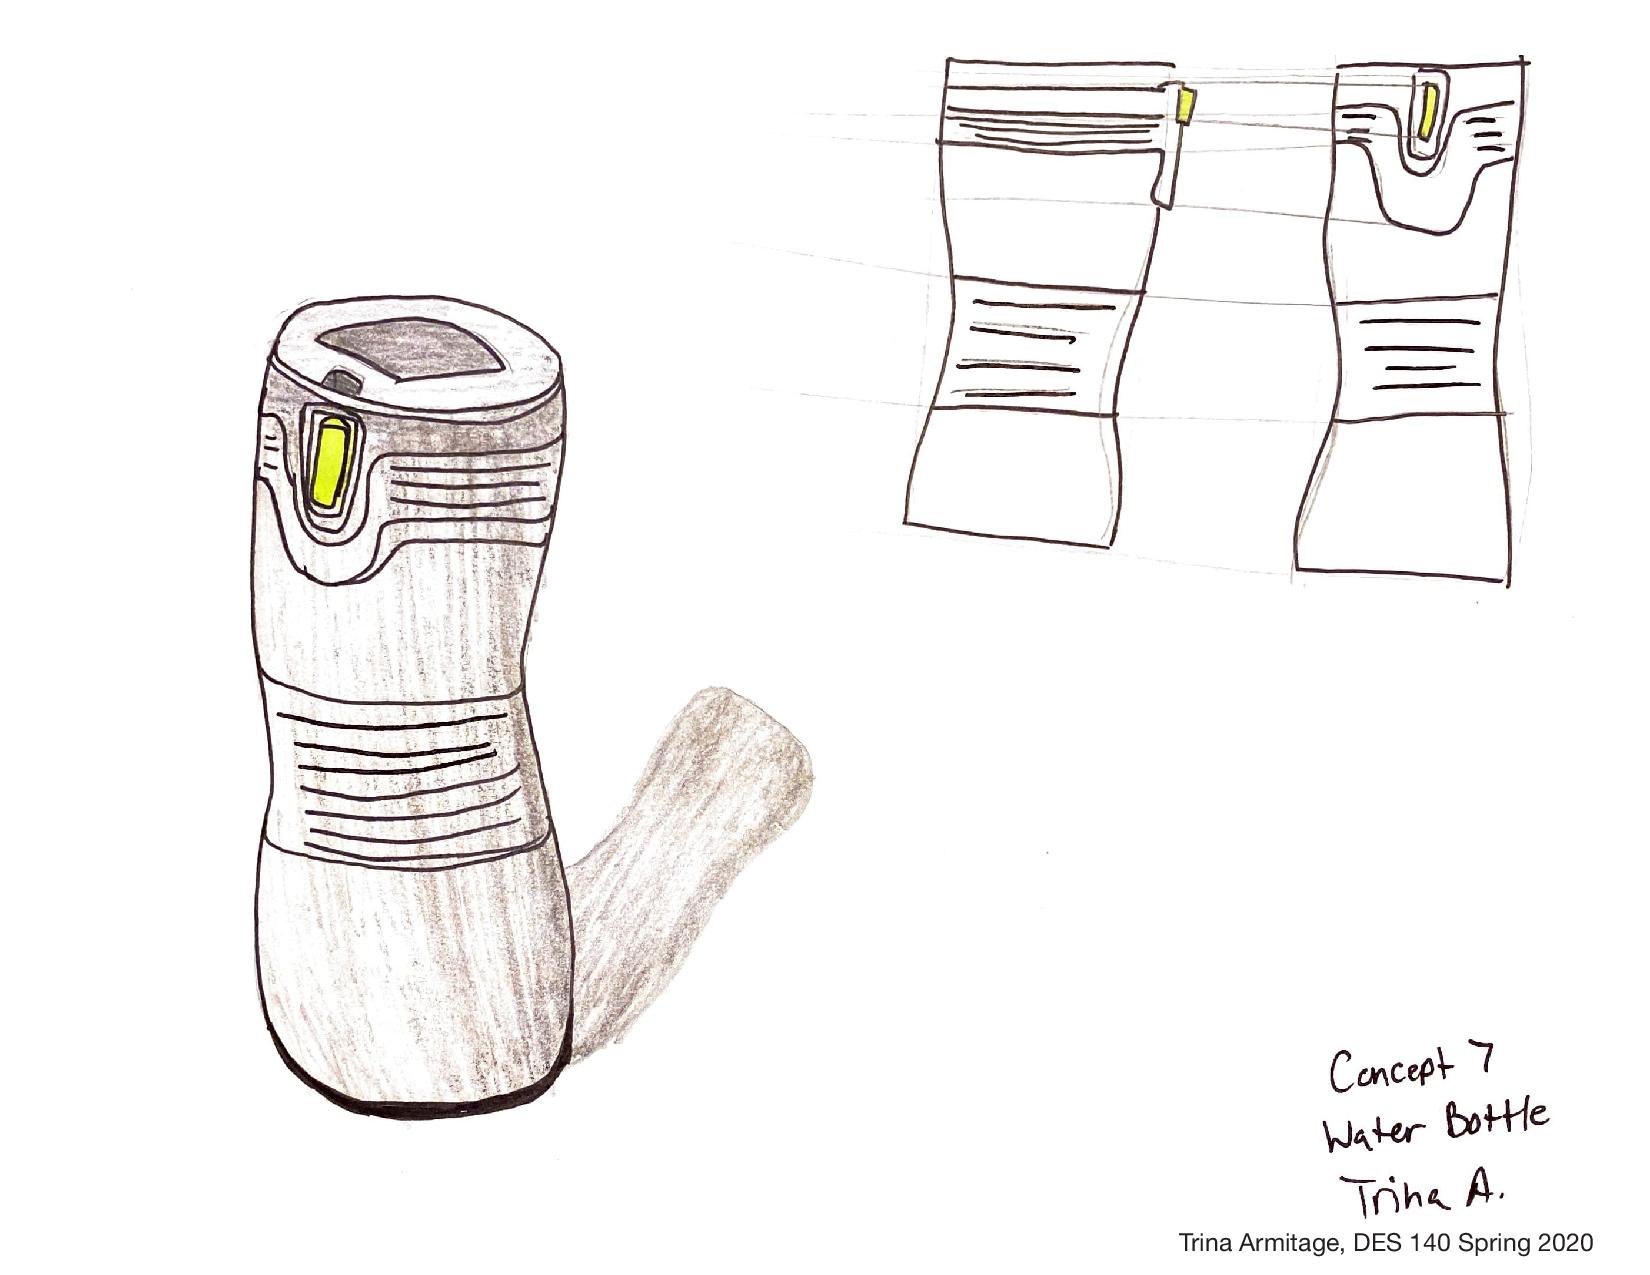 Concept 7
Water Bottle
Trina A.
Trina Armitage, DES 140 Spring 2020